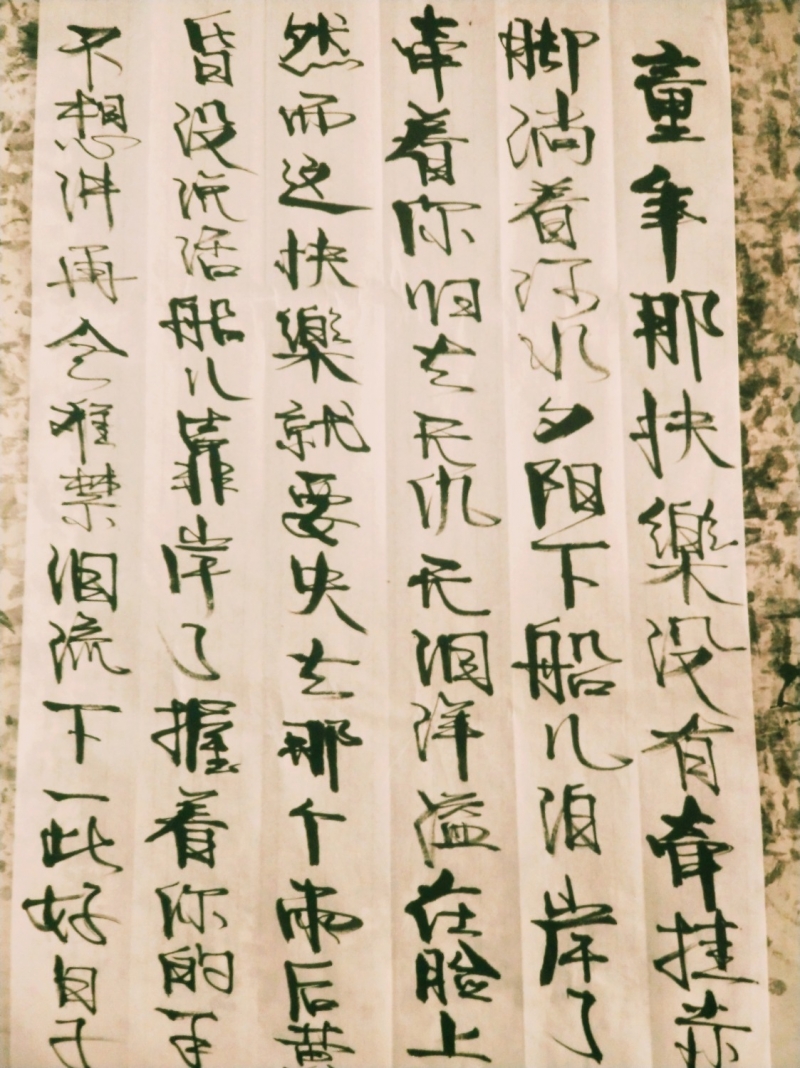 童年那快樂没有牽挂赤
脚淌着河水夕阳下船儿泊岸了
牽着你归去无仇无泪洋溢在脸上
然而这快樂就要失去那个雨后黄
昏没说话船儿靠岸了握着你的手
不想讲再会难禁泪流下一些好日子